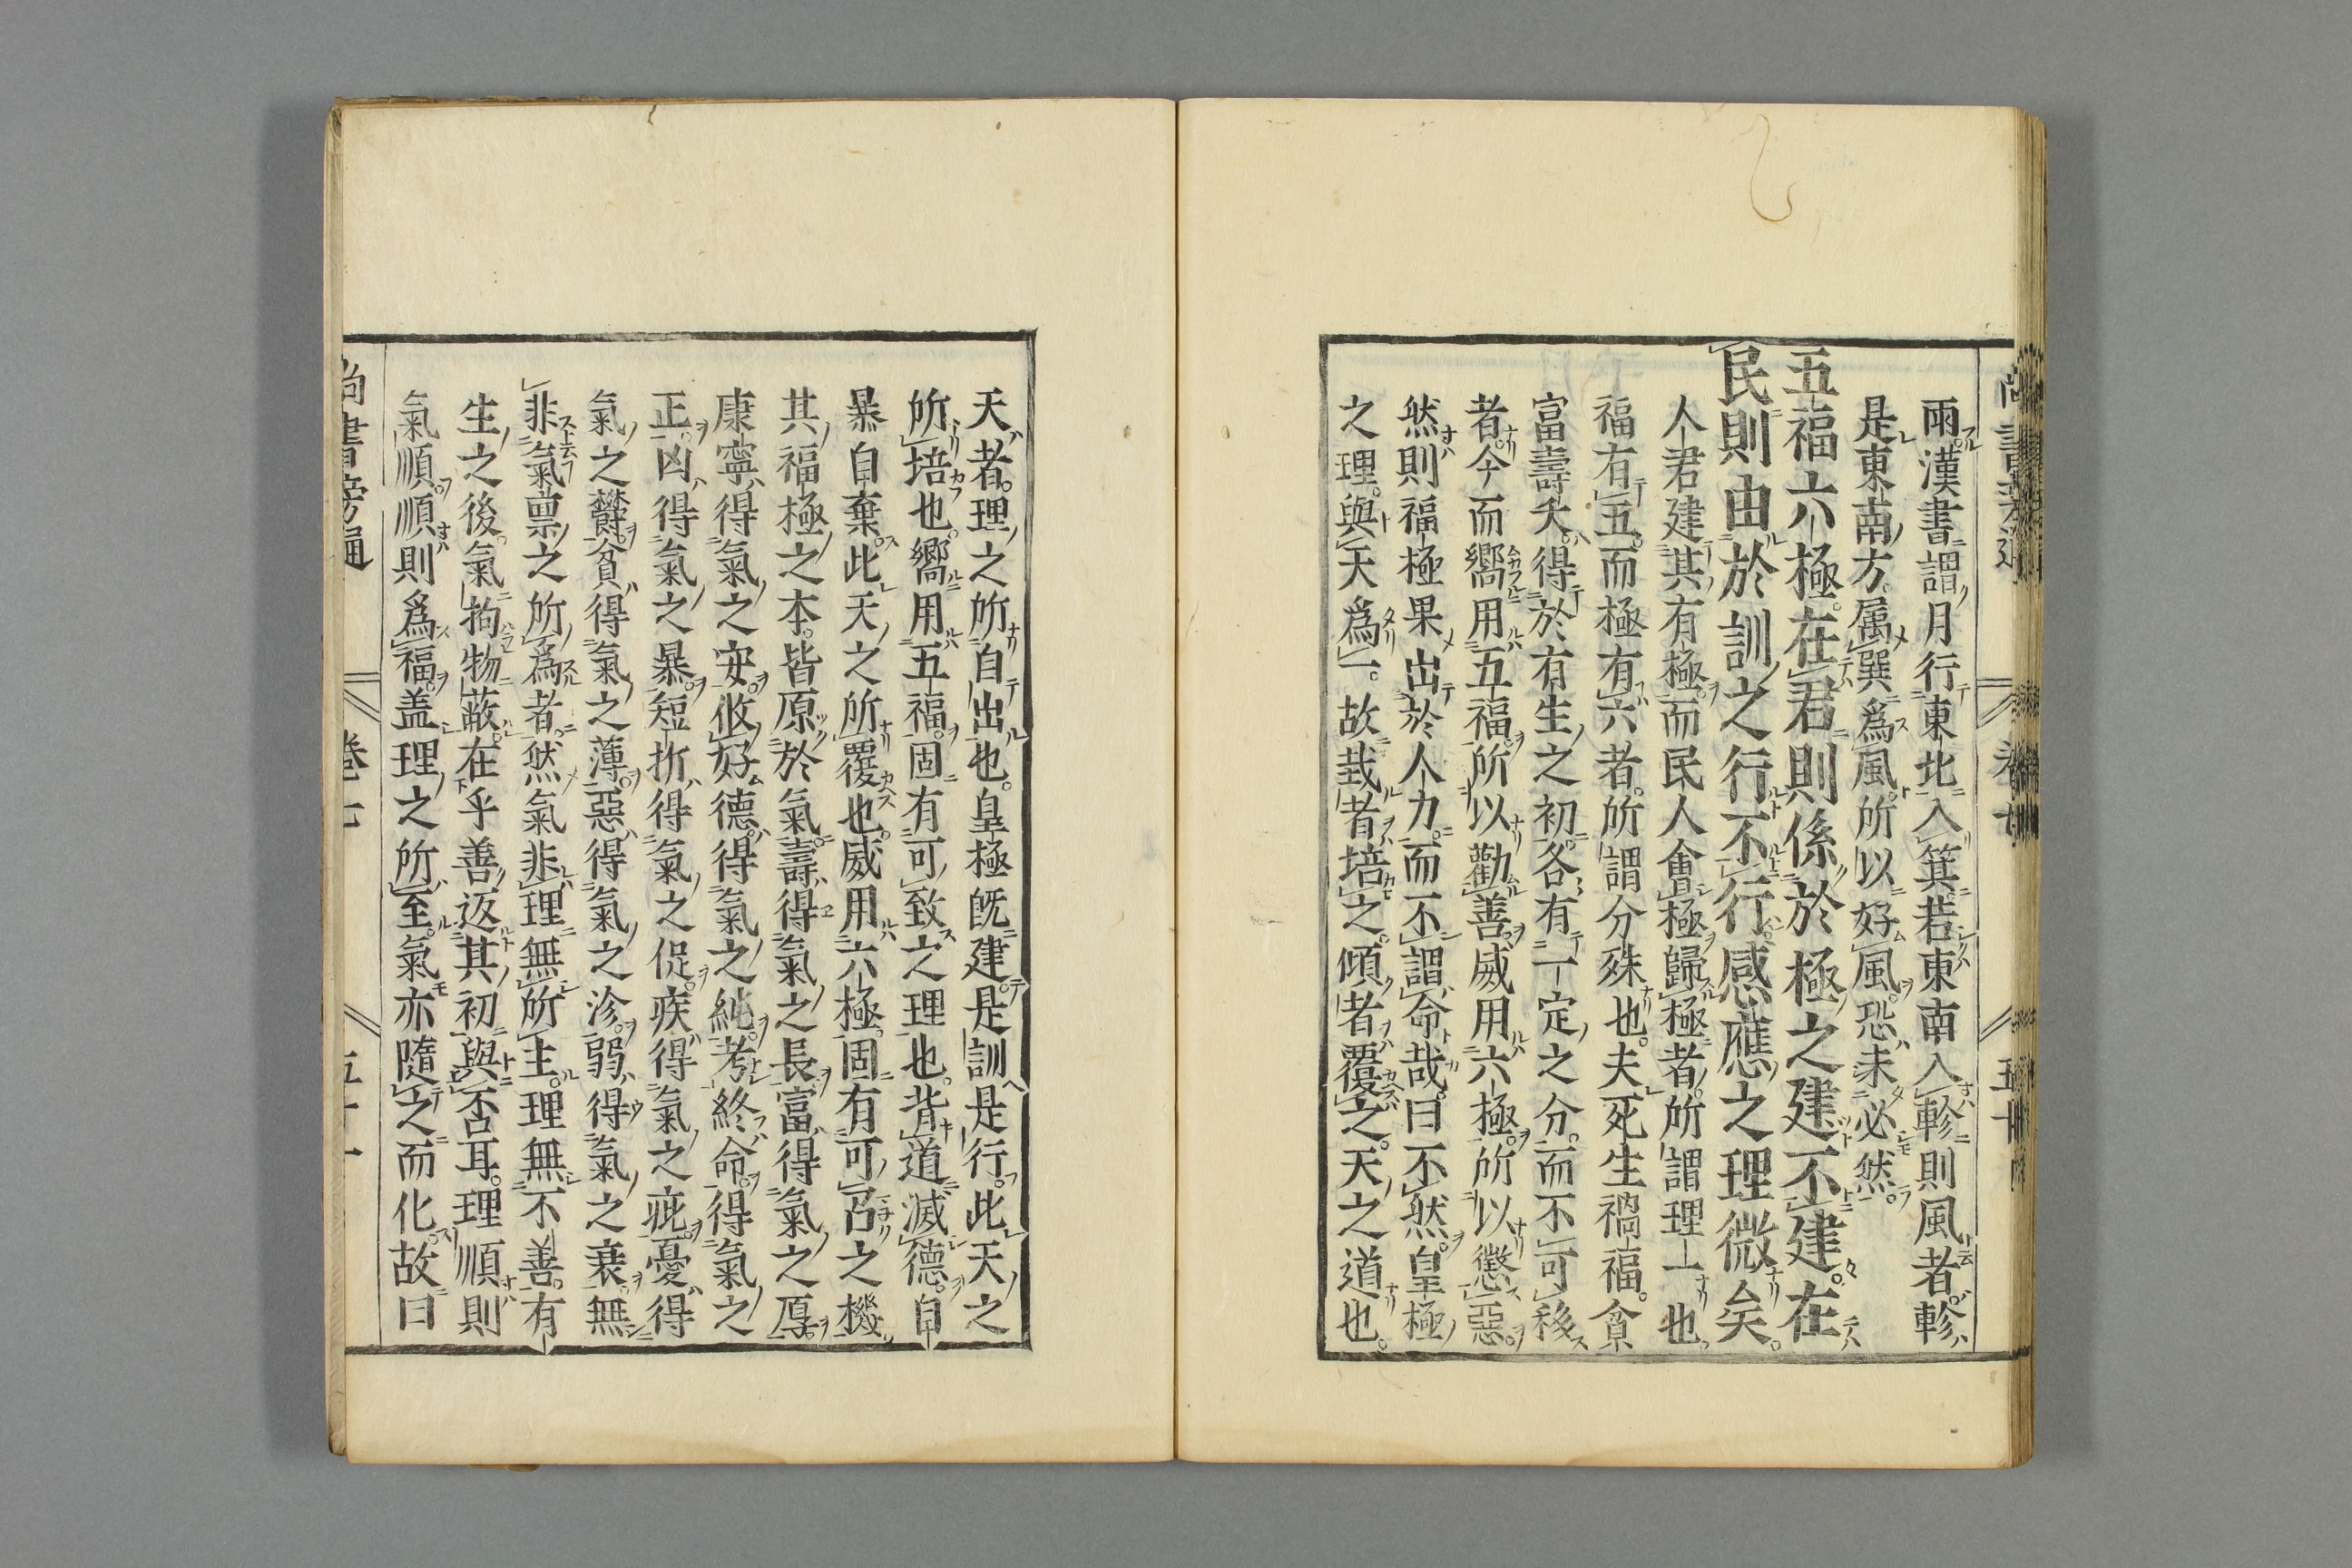 雨。漢書謂月行東北入箕。若東南入軫則風者。軫
是東南方。属巽爲風。所以好風。恐未必然。
五福六極。在君則係於極之建不建。在
民則由於訓之行不行。感應之理微矣。
人君建其有極。而民人會極歸極者。所謂理一也。
福有五。而極有六者。所謂分殊也。夫死生禍福。貧
富壽夭。得於有生之初。各有一定之分。而不可移
者。今而嚮用五福。所以勸善。威用六極。所以懲惡。
然則福極果出於人力。而不謂命哉。曰不然。皇極
之理。與天爲一。故栽者培之。傾者覆之。天之道也。
天者。理之所自出也。皇極旣建。是訓是行。此天之
所培也。嚮用五福。固有可致之理也。背道滅德。自
暴自棄。此天之所覆也。威用六極。固有可召之機
其福極之本。皆原於氣。壽得氣之長。富得氣之厚。
康寧得氣之安。攸好德。得氣之純。考終命。得氣之
正。凶得氣之暴。短折得氣之促。疾得氣之疵。憂得
氣之欝。貧得氣之薄。惡得氣之沴。弱得氣之衰。無
非氣禀之所爲者。然氣非理無所主。理無不善。有
生之後。氣拘物蔽。在乎善返其初與否耳。理順則
氣順。順則爲福。盖理之所至。氣亦隨之而化。故曰
尚書旁通
卷七
五十一